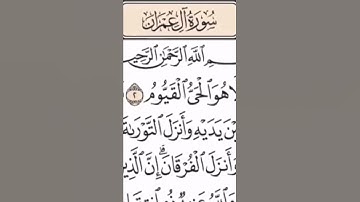 سُورَةُ آلِ عِمۡرَانَ
ٱللَّهِ ٱلرَّحۡمَٰنِ ٱلرَّحِيمِ
هُوَ ٱلۡحَيُّ ٱلۡقَيُّومُ ٢
يَدَيۡهِ وَأَنزَلَ ٱلتَّوۡرَىٰةَ
وَأَنزَلَ ٱلۡفُرۡقَانَۗ إِنَّ ٱلَّذِينَ